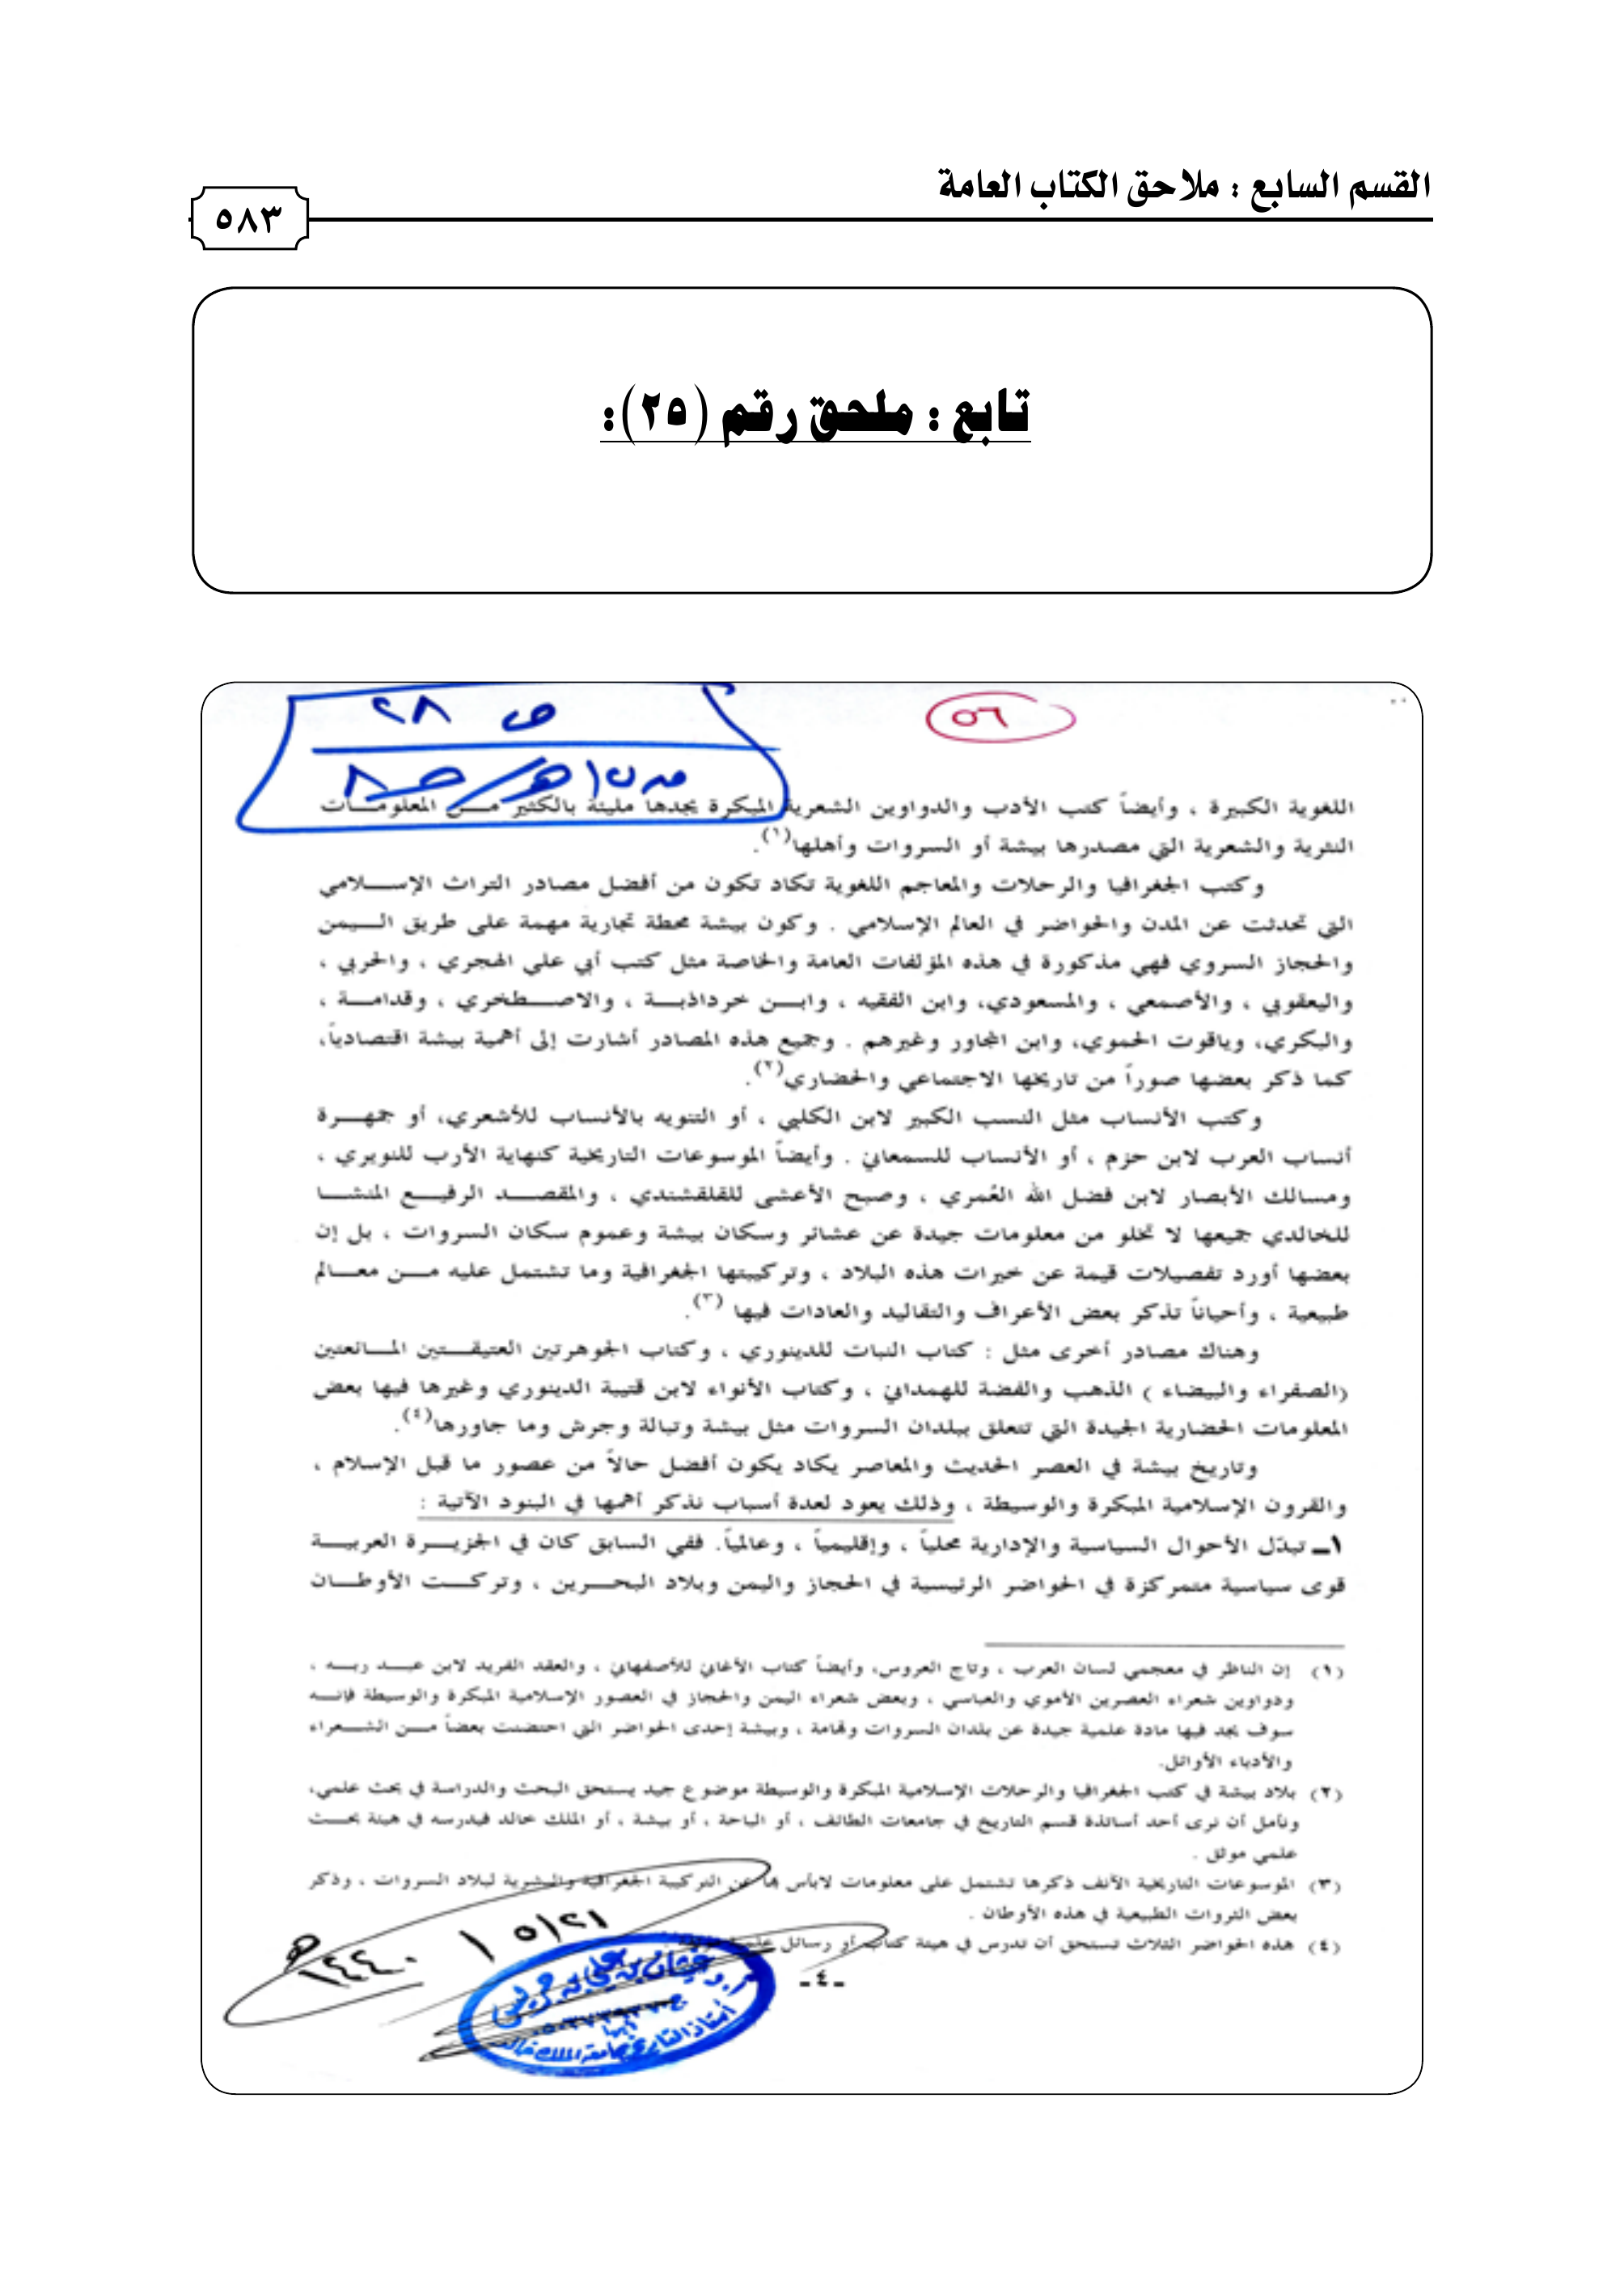 القسم السابع : ملاحق الكتاب العامة
٥٨٣
تابع : ملحق رقم (٢٥):
ص ٢٨
٥٦
اللغوية الكبيرة ، وأيضاً كتب الأدب والدواوين الشعرية المبكرة يجدها مليئة بالكثير من المعلومات
النثرية والشعرية التي مصدرها بيشة أو السروات وأهلها(١).
وكتب الجغرافيا والرحلات والمعاجم اللغوية تكاد تكون من أفضل مصادر التراث الإسلامي
التي تحدثت عن المدن والحواضر في العالم الإسلامي . وكون بيشة محطة تجارية مهمة على طريق اليمن
والحجاز السروي فهي مذكورة في هذه المؤلفات العامة والخاصة مثل كتب أبي علي الهجري ، والحربي ،
واليعقوبي ، والأصمعي ، والمسعودي، وابن الفقيه ، وابن خرداذبة ، والاصطخري ، وقدامة ،
والبكري، وياقوت الحموي، وابن المجاور وغيرهم . وجميع هذه المصادر أشارت إلى أهمية بيشة اقتصادياً،
كما ذكر بعضها صوراً من تاريخها الاجتماعي والحضاري(٢).
وكتب الأنساب مثل النسب الكبير لابن الكلبي ، أو التنويه بالأنساب للأشعري، أو جمهرة
أنساب العرب لابن حزم ، أو الأنساب للسمعاني . وأيضاً الموسوعات التاريخية كنهاية الأرب للنويري ،
ومسالك الأبصار لابن فضل الله العُمري ، وصبح الأعشى للقلقشندي ، والمقصد الرفيع المنشا
للخالدي جميعها لا تخلو من معلومات جيدة عن عشائر وسكان بيشة وعموم سكان السروات ، بل إن
بعضها أورد تفصيلات قيمة عن خيرات هذه البلاد ، وتركيبتها الجغرافية وما تشتمل عليه من معالم
طبيعية ، وأحياناً تذكر بعض الأعراف والتقاليد والعادات فيها (٣).
وهناك مصادر أخرى مثل : كتاب النبات للدينوري ، وكتاب الجوهرتين العتيقتين المائعتين
(الصفراء والبيضاء ) الذهب والفضة للهمداني ، وكتاب الأنواء لابن قتيبة الدينوري وغيرها فيها بعض
المعلومات الحضارية الجيدة التي تتعلق ببلدان السروات مثل بيشة وتبالة وجرش وما جاورها(٤).
وتاريخ بيشة في العصر الحديث والمعاصر يكاد يكون أفضل حالاً من عصور ما قبل الإسلام ،
والقرون الإسلامية المبكرة والوسيطة ، وذلك يعود لعدة أسباب نذكر أهمها في البنود الآتية :
١ـ تبدّل الأحوال السياسية والإدارية محلياً ، وإقليمياً ، وعالمياً. ففي السابق كان في الجزيرة العربية
قوى سياسية متمركزة في الحواضر الرئيسية في الحجاز واليمن وبلاد البحرين ، وتركت الأوطان
(١) إن الناظر في معجمي لسان العرب ، وتاج العروس، وأيضاً كتاب الأغاني للأصفهاني ، والعقد الفريد لابن عبد ربه ،
ودواوين شعراء العصرين الأموي والعباسي ، وبعض شعراء اليمن والحجاز في العصور الإسلامية المبكرة والوسيطة فإنه
سوف يجد فيها مادة علمية جيدة عن بلدان السروات وتهامة ، وبيشة إحدى الحواضر التي احتضنت بعضاً من الشعراء
والأدباء الأوائل.
(٢) بلاد بيشة في كتب الجغرافيا والرحلات الإسلامية المبكرة والوسيطة موضوع جيد يستحق البحث والدراسة في بحث علمي،
ونأمل أن نرى أحد أساتذة قسم التاريخ في جامعات الطائف ، أو الباحة ، أو بيشة ، أو الملك خالد فيدرسه في هيئة بحث
علمي موثق .
(٣) الموسوعات التاريخية الآنف ذكرها تشتمل على معلومات لابأس بها عن التركيبة الجغرافية والبشرية لبلاد السروات ، وذكر
بعض الثروات الطبيعية في هذه الأوطان .
(٤) هذه الحواضر الثلاث تستحق أن تدرس في هيئة كتاب أو رسائل
١٤٤٠/٥/٢١هـ
-٤-
أستاذ التاريخ بجامعة الملك خالد